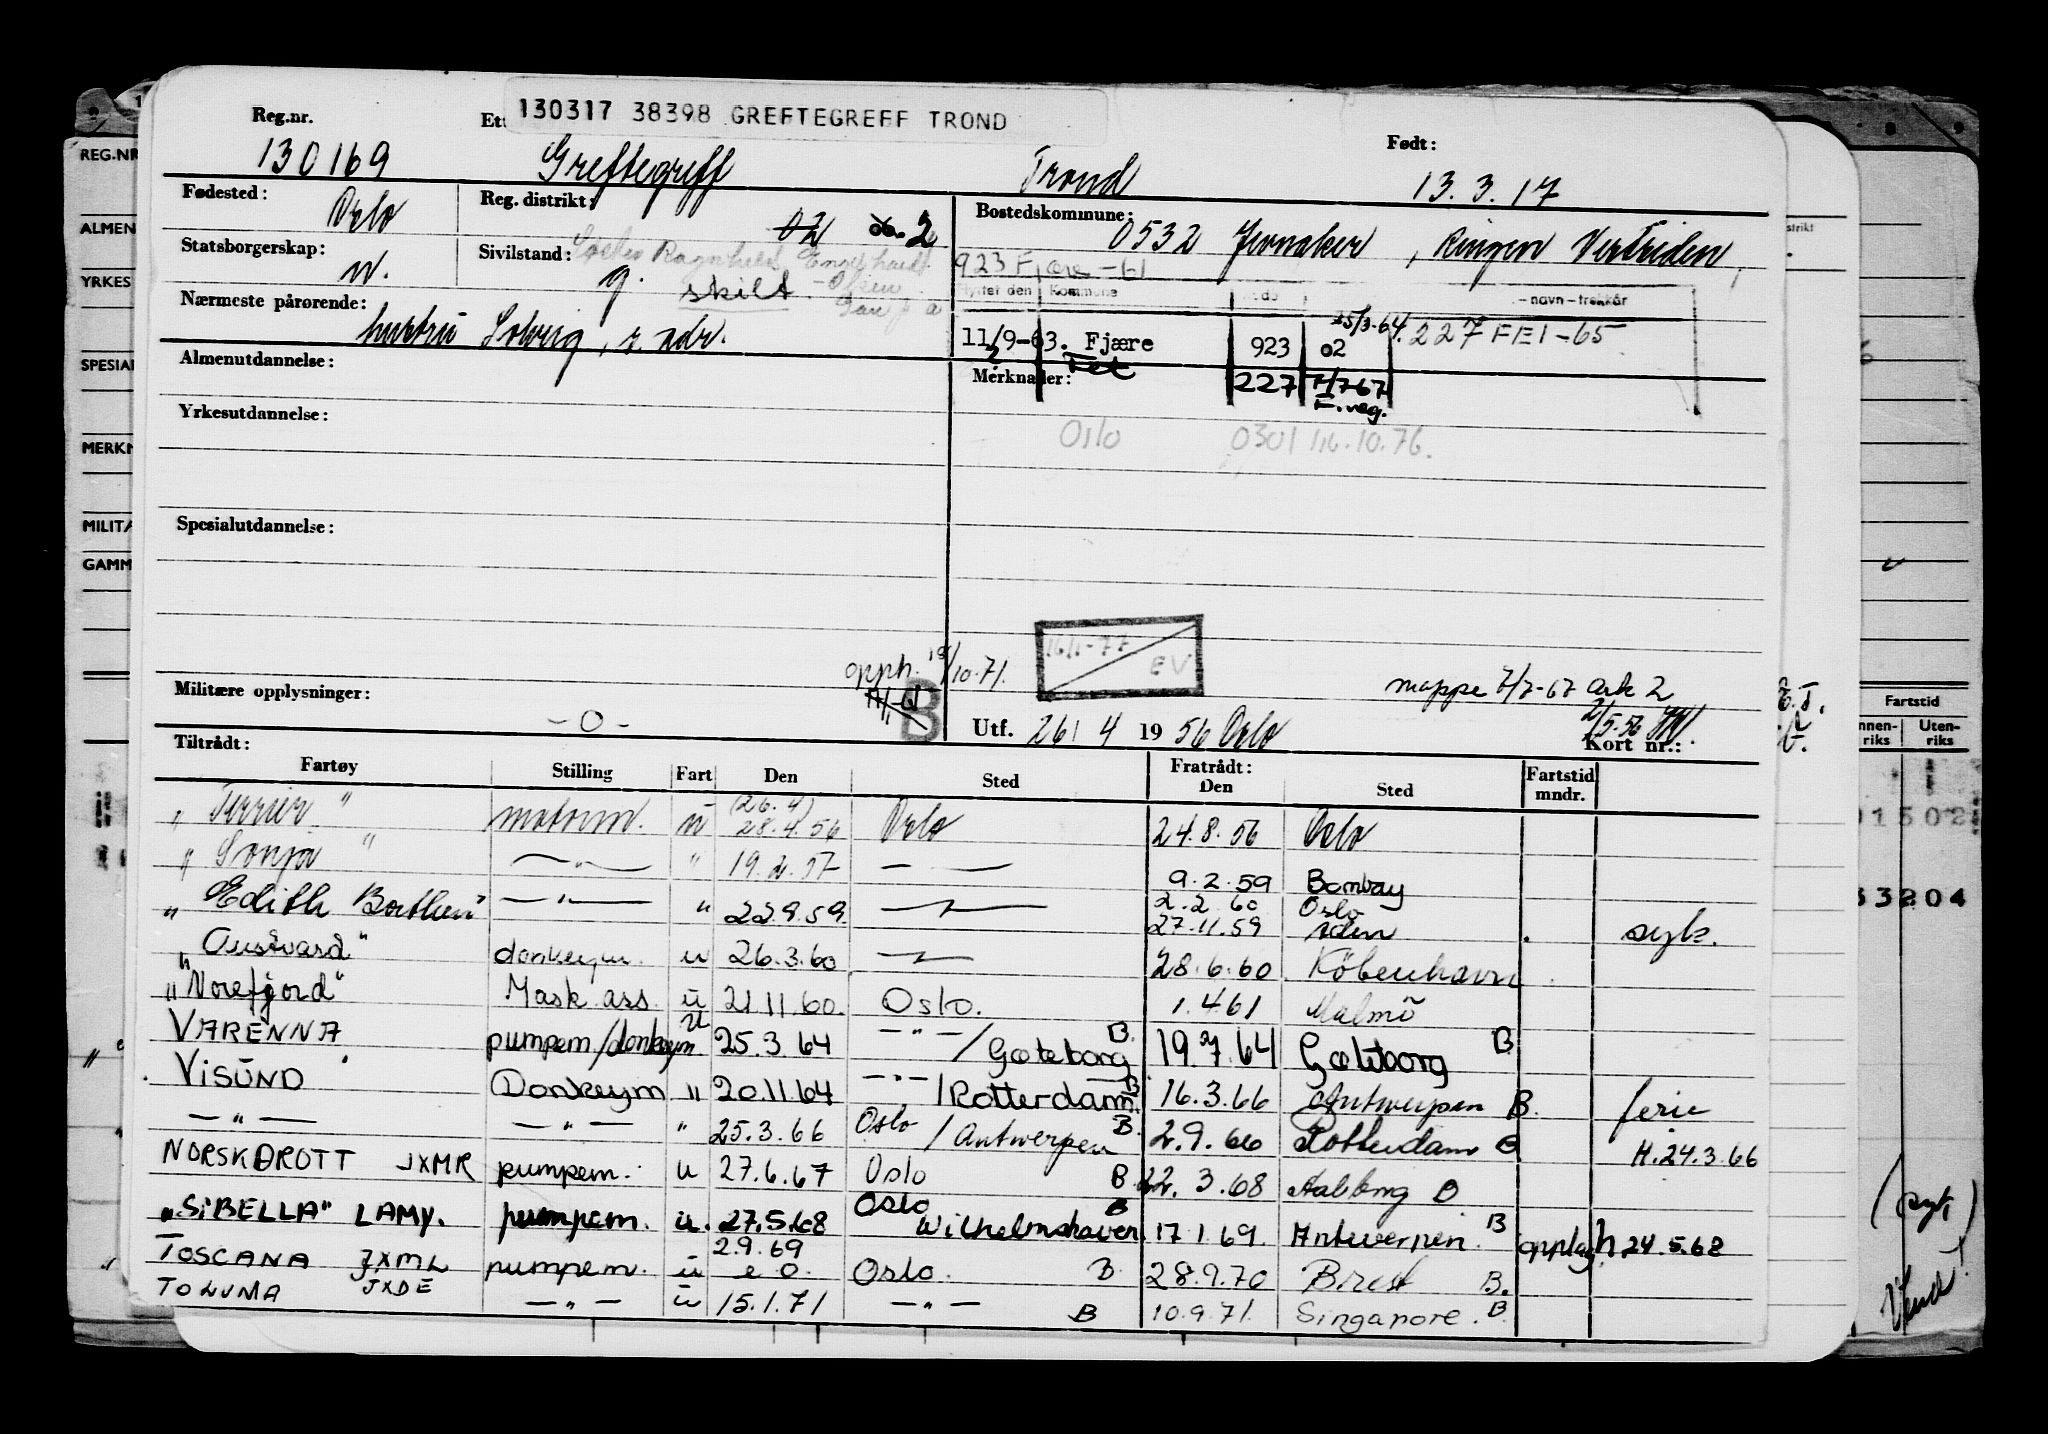 130317 38398 GREFTEGREFF TROND
Reg.nr. Ett Født:
130169 Greftegreff Trond 13.3.17
Fødested: Oslo Reg. distrikt: 02 2 Bostedskommune: 0532 Jevnaker, Ringen Vertriden,
Statsborgerskap: n. Sivilstand: g. skilt. Søster Ragnhild Engelhardt 923 Fjære-61
Flyttet den Kommune -navn-trekkår
Nærmeste pårørende: hustru Solveig, s. adr.
11/9-63. Fjære 923 02 25/3-64. 227 FEI-65
Almenutdannelse: Merknader: Fet 227 7/7 67 F.reg.
Yrkesutdannelse:
Oslo 0301 16.10.76.
Spesialutdannelse:
16/1-77 EV
opph. 18/10.71.
mappe 7/7-67 ark 2
Militære opplysninger: -0- B
Utf. 26/4 1956 Oslo 2/5.56 Kort nr.:
Tiltrådt: Fratrådt:
Fartøy Stilling Fart Den Sted Den Sted Fartstid mndr.
"Terrier" motorm. u (26.4) 28.4.56 Oslo 24.8.56 Oslo
"Sonja" -"- " 19.2.57 -"- 9.2.59 Bombay
2.2.60 Oslo
"Edith Borthen" -"- " 22.9.59. -"- 27.11.59 Aden syk.
"Austvard" donkeym. u 26.3.60 -"- 28.6.60 København
"Norefjord" Mask ass. u 21.11.60. Oslo. 1.4.61 Malmö
VARENNA pumpem/donkeym. u 25.3.64 -"-/Gøteborg B 19.7.64 Gøteborg B
VISUND Donkeym " 20.11.64 -"-/Rotterdam B 16.3.66 Antwerpen B. ferie
-"- -"- " 25.3.66 Oslo/Antwerpen B. 2.9.66 Rotterdam B H.24.3.66
NORSK DROTT JXMR pumpem. u 27.6.67 Oslo B 22.3.68 Aalborg B
"SIBELLA" LAMY. pumpem. u. 27.5.68 Oslo Wilhelmshaven B 17.1.69. Antwerpen. B opplag h 24.5.68
TOSCANA JXML pumpem. u 2.9.69 e.o. Oslo. B. 28.9.70 Brest B.
TOLUMA JXDE -"- u 15.1.71 -"- B 10.9.71. Singapore. B
REG.NR
ALMEN
YRKES
SPESIAL
MERKN
MILITÆ
GAMM
Fartstid
Innen-riks Uten-riks
01502
33204